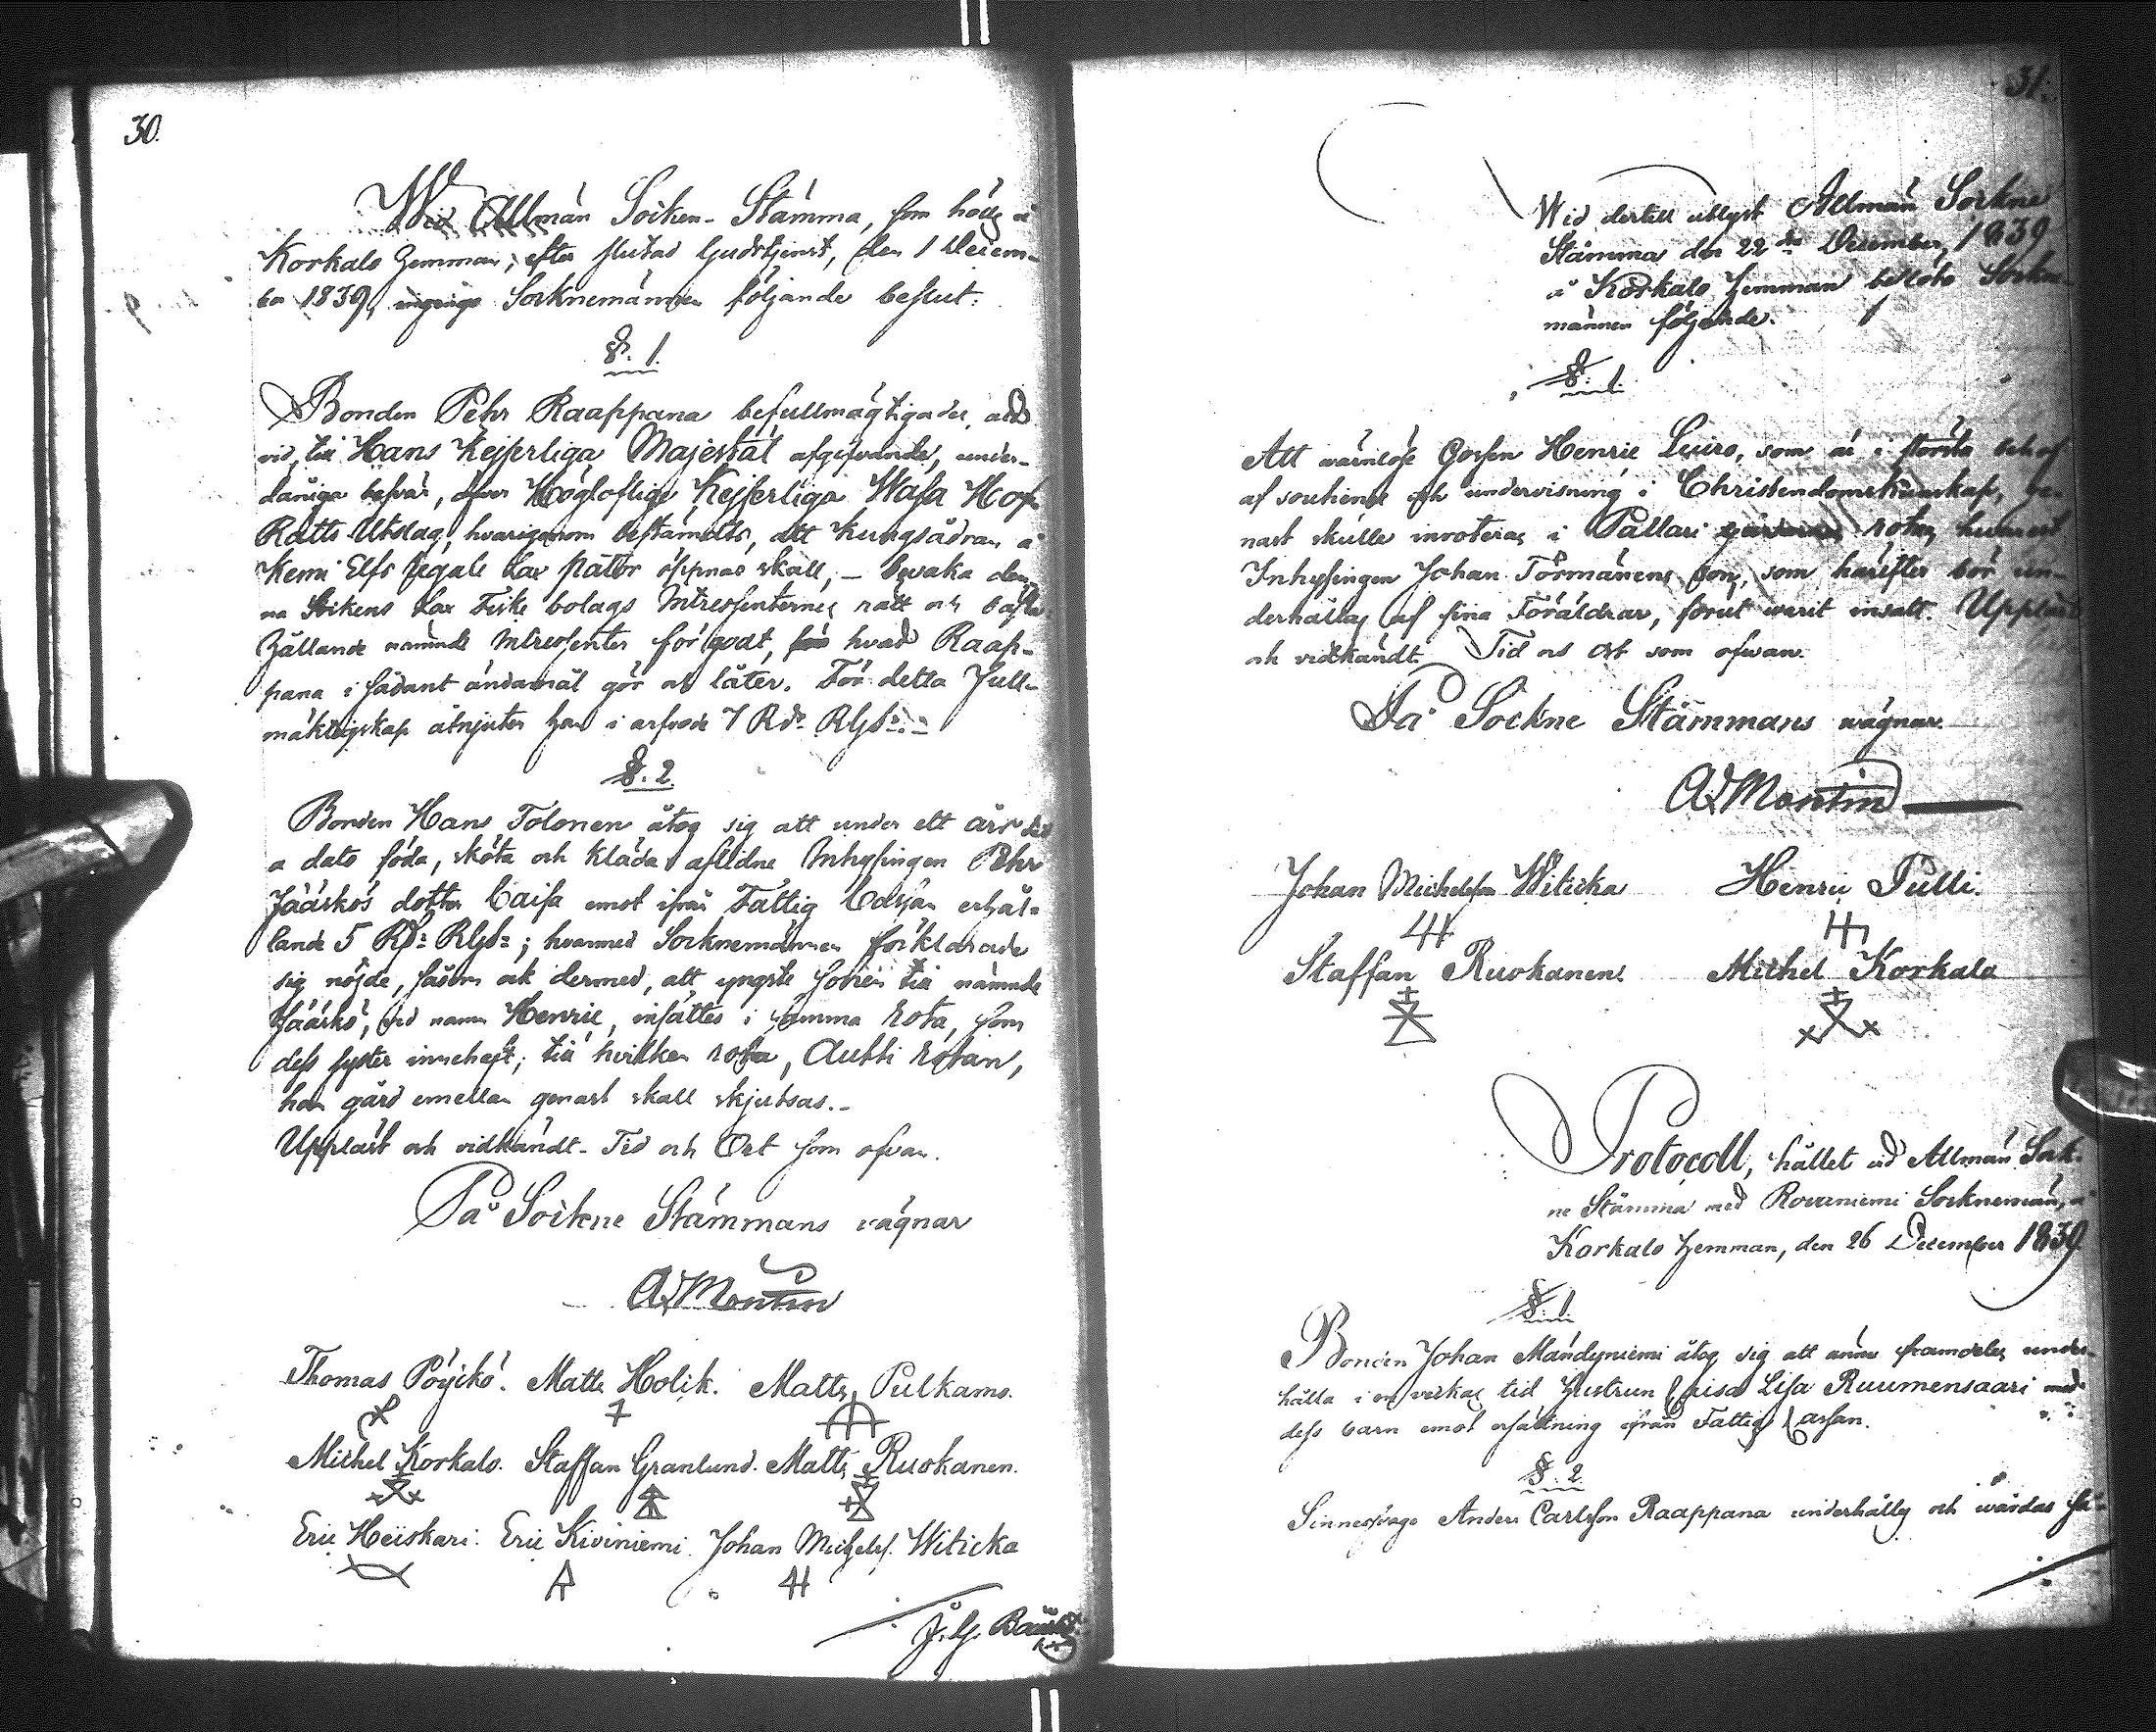 30.
Wid Allmän Socken-Stämma, som hölls å
Korkalo hemman, efter slutad Gudstjenst, den 1 Decem-
ber 1839, ingingo Socknemännen följande beslut:
§. 1.
Bonden Pehr Raappana befullmägtigades, att
vid, till Hans Kejserliga Majestät afgifvande, under-
dåniga besvär, öfver Höglofliga Kejserliga Wasa Hof
Rätts Utslag, hvarigenom bestämdts, att Kungsådran å
Kemi Elfs legale Lax pator öppnas skall, – bevaka den-
na Sockens Lax Fiske bolags Intressenternes rätt och bästa.
hållande nämnde Intressenter för godt, hvad Raap-
pana i sådant ändamål gör och låter. För detta Full-
mäktigskap åtnjuter han i arfvode 7 Rdr RGds.
§. 2.
Bonden Hans Tolonen åtog sig att under ett års tid
a dato föda, sköta och kläda aflidne Inhysingen Pehr
Jääskös dotter Caisa emot ifrån Fattig Cassan erhål-
lande 5 Rdr RGds; hvarmed Socknemännen förklarade
sig nöjde, såsom ock dermed, att yngste sonen till nämnde
Jääskö, vid namn Henric, insättes i samma Rota, som
dess syster innehaft; till hvilken rota, Autti Rotan,
han gård emellan genast skall skjutsas.–
Uppläst och vidkändt– Tid och Ort som ofvan.
På Sockne Stämmans vägnar
A. Montin
Thomas Pöyikö. Matts Holik. Matts Pulkamo.
Michel Korkalo. Staffan Granlund. Matts Ruokanen.
Eric Heiskari. Eric Kiviniemi. Johan Michels. Witicka
31.
Wid dertill utlyst Allmän Sockne
Stämma den 22dra December 1839
å Korkalo hemman beslöto Sockne-
männen följande.
§. 1.
Att wärnlöse Gossen Henric Luiro, som är i största behof
af soutienst och undervisning i Christendomskunskap, ge-
nast skulle inroteras i Pallari rotan, hvarest
Inhysingen Johan Törmänens son, som härefter bör un-
derhållas af sina Föräldrar, förut warit insatt. Uppläst
och vidkändt. Tid och Ort som ofwan.
På Sockne Stämmans wägnar.
A. Montin
Johan Michelsson Witicka Henric Pulli.
Staffan Ruokanen. Michel Korkalo
Protocoll, hållet vid Allmän Sock-
ne Stämma med Rovaniemi Socknemän, å
Korkalo hemman, den 26 December 1839.
§. 1.
Bonden Johan Mändyniemi åtog sig att ännu framdeles under-
hålla i en veckas tid Hustrun Lisa Ruumensaari med
dess barn emot ersättning ifrån Fattig Cassan.
§. 2.
Sinnessvage Anders Carlsson Raappana underhålles och wårdas